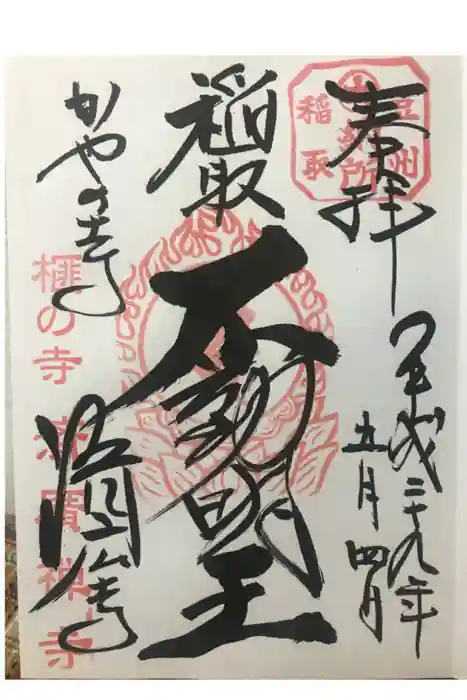 奉拝
平成二十九年
五月四日
豆州
稲取
稲取
不動明王
かやの寺
済廣寺
榧の寺 済廣禅寺